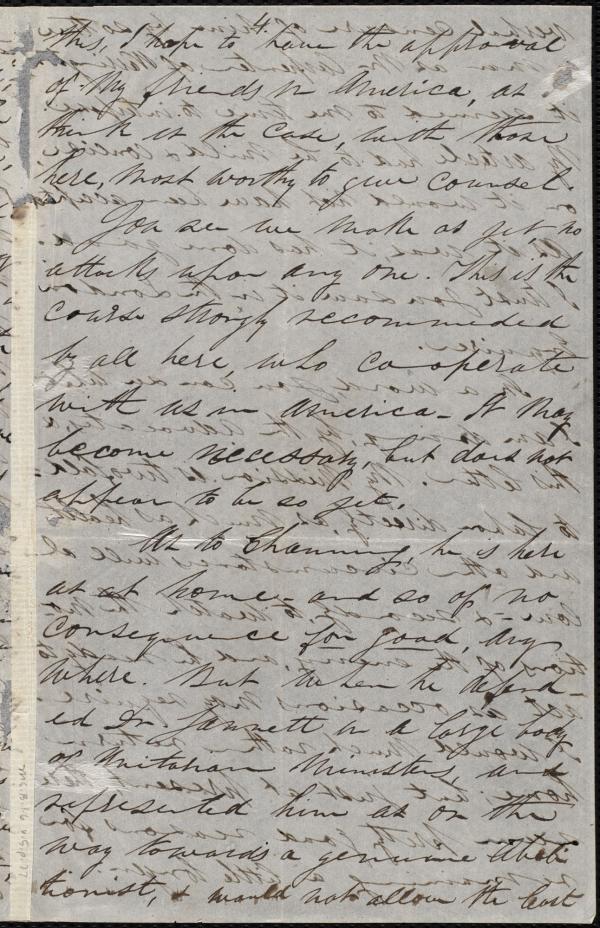 4.
this, I hope to have the approval
of my friends in America, as I
think is the case, with those
here, most worthy to give counsel.
You see we make as yet, no
attacks upon any one. This is the
course strongly recommeded
by all here, who co-operate
with us in America - It may
become necessary, but does not
appear to be so yet.
As to Channing, he is here
as at home - and so of no
consequence for good, any
where. But when he defend-
ed Dr Gannett in a large body
of Unitarian Ministers, and
represented him as on the
way towards a genuine Aboli
tionist, & would not allow the least